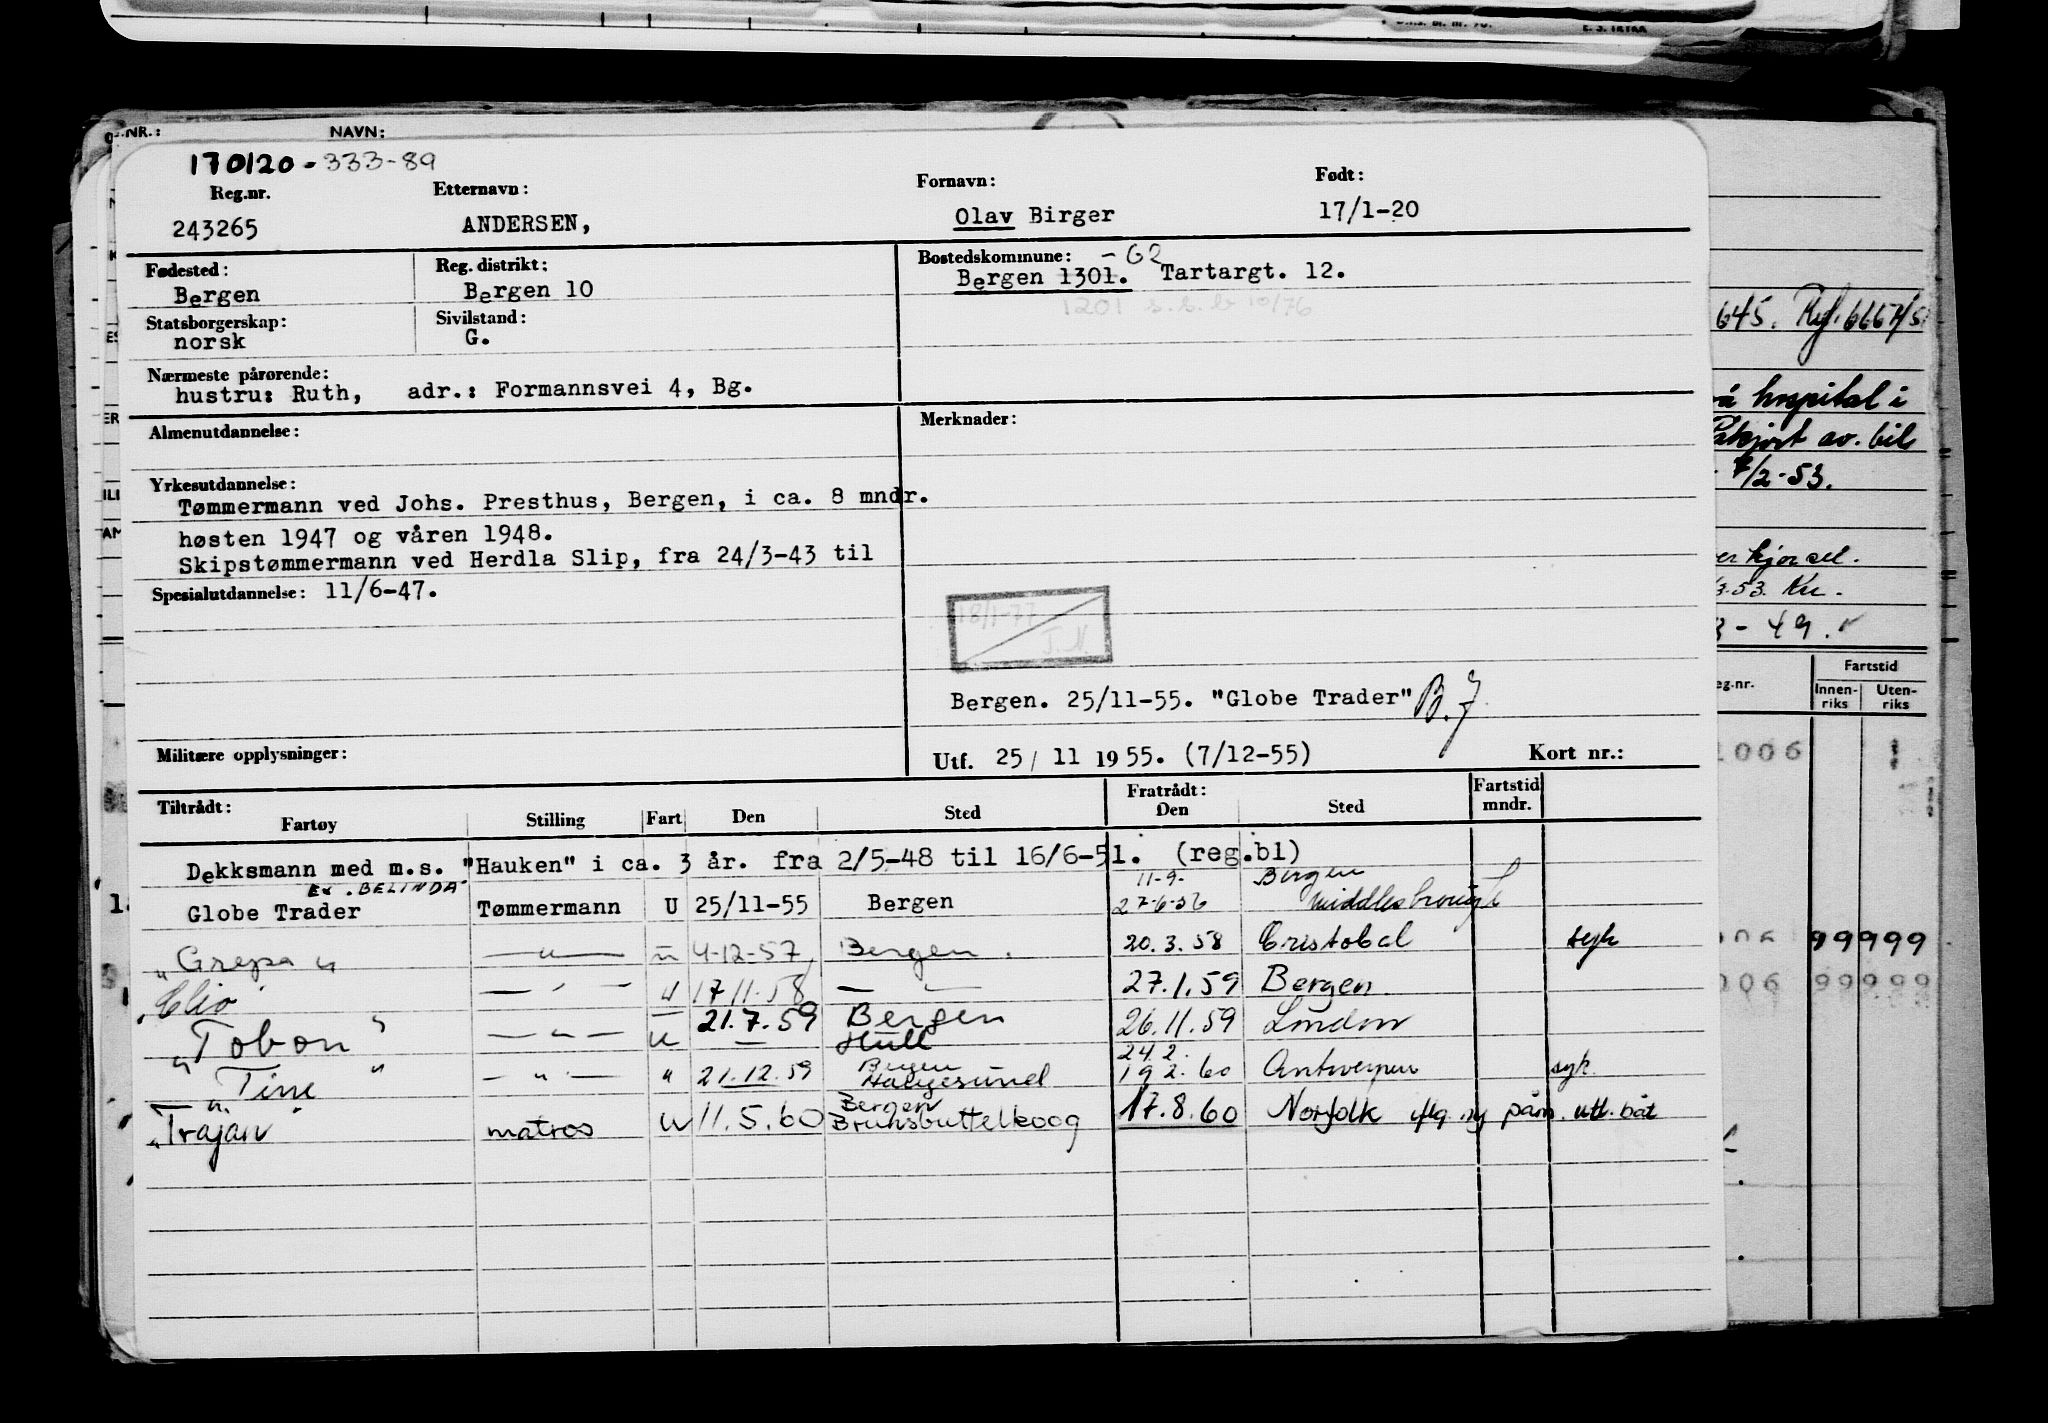 NR.: NAVN:
170120-333-89
Reg.nr. Etternavn: Fornavn: Født:
243265 ANDERSEN, Olav Birger 17/1-20
Fødested: Reg. distrikt: Bostedskommune: -G2
Bergen Bergen 10 Bergen 1301. Tartargt. 12.
1201 s.s.b 10/76
Statsborgerskap: Sivilstand:
norsk G.
Nærmeste pårørende:
hustru: Ruth, adr.: Formannsvei 4, Bg.
Almenutdannelse: Merknader:
Yrkesutdannelse:
Tømmermann ved Johs. Presthus, Bergen, i ca. 8 mndr.
høsten 1947 og våren 1948.
Skipstømmermann ved Herdla Slip, fra 24/3-43 til
Spesialutdannelse: 11/6-47.
18/1-77
J.N.
Bergen. 25/11-55. "Globe Trader" B.J
Militære opplysninger: Utf. 25/ 11 1955. (7/12-55) Kort nr.:
Tiltrådt: Fratrådt: Fartstid
Fartøy Stilling Fart Den Sted Den Sted mndr.
Dekksmann med m.s. "Hauken" i ca. 3 år. fra 2/5-48 til 16/6-51. (reg.bl)
Ex. BELINDA 11-9- Bergen
Globe Trader Tømmermann U 25/11-55 Bergen 27-6-56 Middlesbrough
"Grepa" — " — u 4-12-57 Bergen. 20.3.58 Cristobal syk
"Clio" — " — u 17 11-58 — " — 27.1.59 Bergen.
"Tobon" — " — u 21.7.59 Bergen Hull 26.11.59 London
24.2.
"Tine" — " — " 21.12.59 Bergen Haugesund 19 2.60 Antwerpen syk
"Trajan" matros u 11.5.60 Bergen Brunsbuttelkoog 17.8.60 Norfolk påm. utl. båt
645. Ref. 6667/5
hospital i
Påkjørt av. bil
7/2-53.
kjørsel.
3.53. Kn.
3-49.
Fartstid
eg.nr. Innen-riks Uten-riks
1006
99999
006 99999